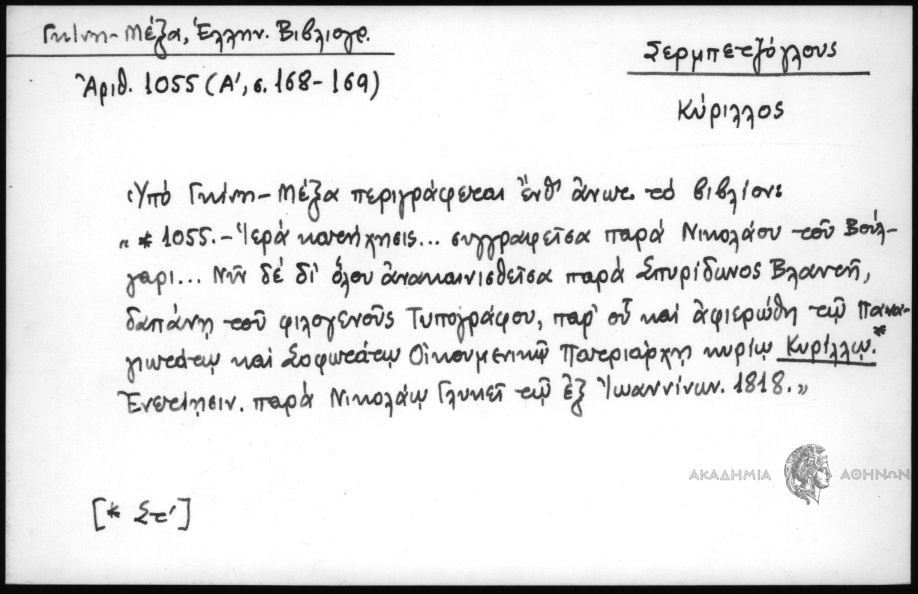 Γκίνη-Μέξα, Ἑλλην. Βιβλιογρ.
Ἀριθ. 1055 (Α', σ. 168-169)
Σερμπετζόγλους
Κύριλλος
Ὑπό Γκίνη-Μέξα περιγράφεται ἔνθ' ἀνωτ. τό βιβλίον:
"* 1055.- Ἱερά κατήχησις... συγγραφεῖσα παρά Νικολάου τοῦ Βούλ-
γαρι... Νῦν δέ δι' ὅλου ἀνακαινισθεῖσα παρά Σπυρίδωνος Βλαντῆ,
δαπάνῃ τοῦ φιλογενοῦς Τυπογράφου, παρ' οὗ καί ἀφιερώθη τῷ Πανα-
γιωτάτῳ καί Σοφωτάτῳ Οἰκουμενικῷ Πατριάρχῃ κυρίῳ Κυρίλλῳ.*
Ἐνετίησιν. παρά Νικολάῳ Γλυκεῖ τῷ ἐξ Ἰωαννίνων. 1818.»
ΑΚΑΔΗΜΙΑ ΑΘΗΝΩΝ
[* Στ']